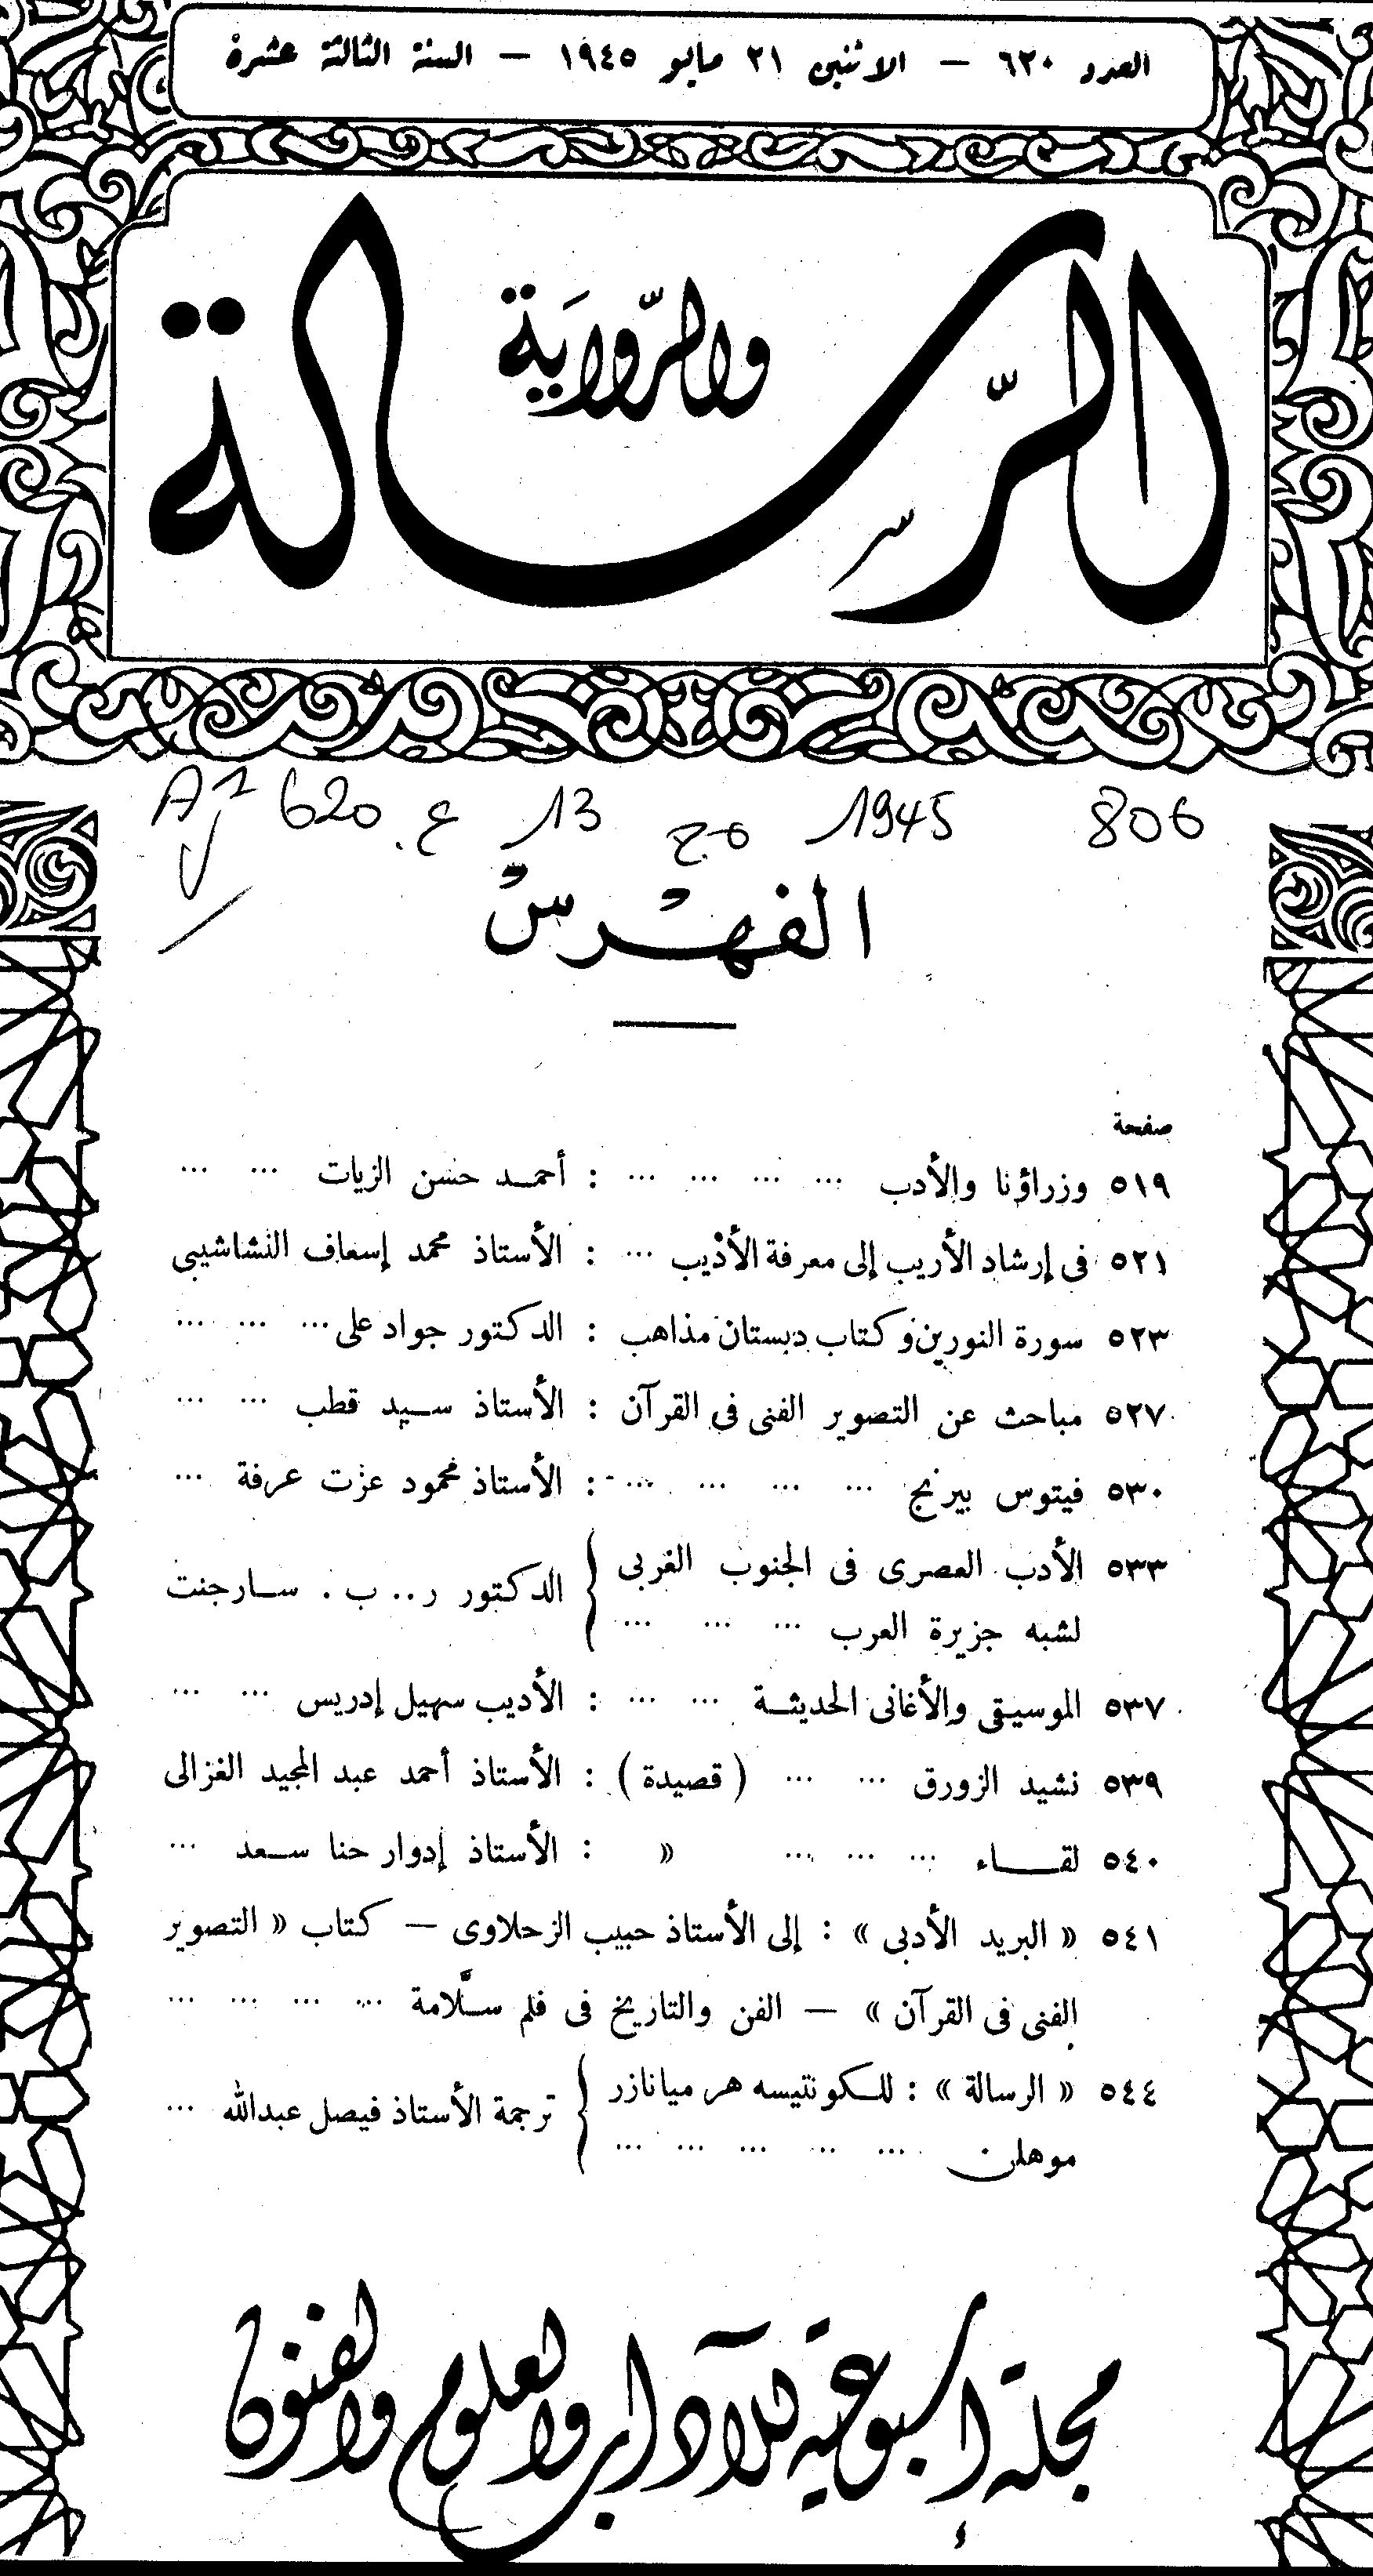 العدد ٦٢٠ — الاثنين ٢١ مايو ١٩٤٥ — السنة الثالثة عشرة
الرسالة
والرواية
620 ع 13 مج 1945 806
الفهرس
صفحة
٥١٩ وزراؤنا والأدب ... ... ... ... : أحمد حسن الزيات ... ...
٥٢١ فى إرشاد الأريب إلى معرفة الأديب ... : الأستاذ محمد إسعاف النشاشيبى
٥٢٣ سورة النورين وكتاب دبستان مذاهب : الدكتور جواد على ... ... ...
٥٢٧ مباحث عن التصوير الفنى فى القرآن : الأستاذ سيد قطب ... ...
٥٣٠ فيتوس بيرنج ... ... ... ... : الأستاذ محمود عزت عرفة ...
٥٣٣ الأدب العصرى فى الجنوب الغربى
لشبه جزيرة العرب ... ... ... } الدكتور ر .. ب . سارجنت
٥٣٧ الموسيقى والأغانى الحديثة ... ... : الأديب سهيل إدريس ... ...
٥٣٩ نشيد الزورق ... ... ( قصيدة ) : الأستاذ أحمد عبد المجيد الغزالى
٥٤٠ لقاء ... ... ... » : الأستاذ إدوار حنا سعد ...
٥٤١ « البريد الأدبى » : إلى الأستاذ حبيب الزحلاوى — كتاب « التصوير
الفنى فى القرآن » — الفن والتاريخ فى فلم سلَّامة ... ... ... ...
٥٤٤ « الرسالة » : للكونتيسه هرميانازر
موهلن ... ... ... ... ... } ترجمة الأستاذ فيصل عبدالله ...
مجلة أسبوعية للآداب والعلوم والفنون